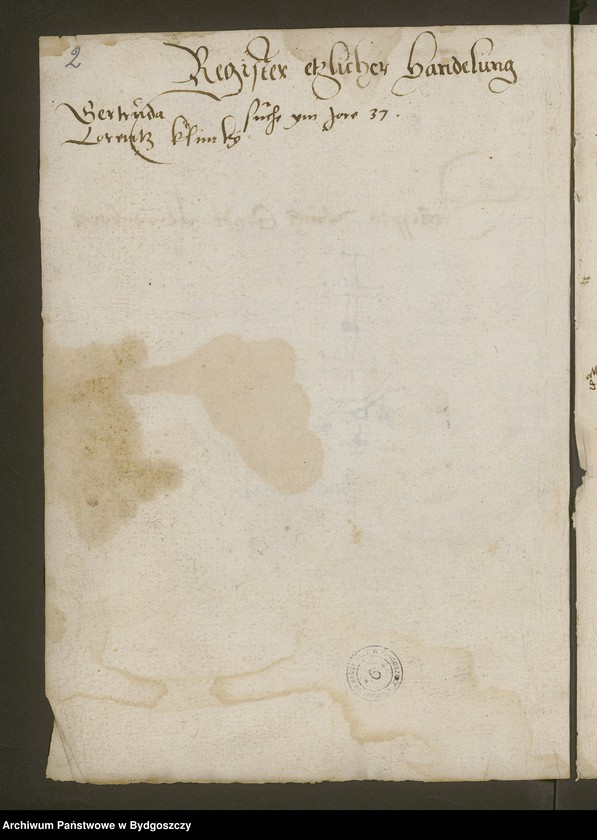 2
Register etzlicher Handelung
Gertruda suche ym Jore 37.
Lorentz klinsky
6
Archiwum Państwowe w Bydgoszczy